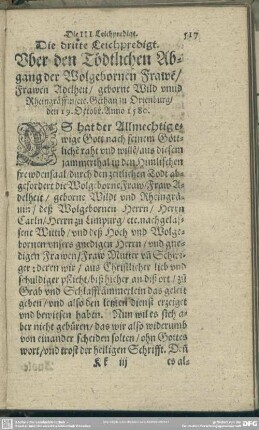 Die III Leichpredigt. 517
Die dritte Leichpredigt.
Vber den Tödtlichen Ab-
gang der Wolgebornen Frawẽ/
Frawen Adelheit/ geborne Wild vnnd
Rheingräffin/etc. Gähan zu Ortenburg/
den 19. Octobr. Anno 1580.
ES hat der Allmechtige e-
wige Gott nach seinem Gött-
liche raht vnd willẽ/ aus diesem
jammerthal in den Himlischen
frewdensaal durch den zeitlichen Todt ab-
gefordert die Wolg: borne Fraw/ Fraw A-
delheit/ geborne Wildt vnd Rheingrä-
uin/ deß Wolgebornen Herrn/ Herrn
Carln/ Herrn zu Limpurg/ etc. nachgelas-
sene Wittib/ vnd deß Hoch vnd Wolge-
bornen vnsers gnedigen Herrn/ vnd gne-
digen Frawen/ Fraw Mutter vñ Schwi-
ger: deren wir/ aus Christlicher lieb vnd
schuldiger pflicht/ biß hieher an diß ort/ zũ
Grab vnd Schlaffkämmerlein das geleit
geben/ vnd also den letzten dienst erzeiget
vnd bewisen haben. Nun wil es sich a-
ber nicht gebüren/ das wir also widerumb
von einander scheiden solten/ ohn Gottes
wort/ vnd trost der heiligen Schrifft. Deñ
Kk iij es al-